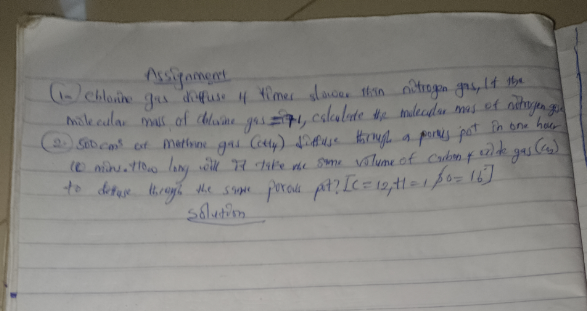 Assignment
1. Chlorine gas diffuse 4 times slower than nitrogen gas, if the
molecular mass of chlorine gas = 71, calculate the molecular mass of nitrogen gas
2. 500cm³ of methane gas (CH4) diffuse through a porous pot in one hour
10 mins. How long will it take the same volume of carbon gas
to diffuse through the same porous pot? [C = 12, H = 1, O = 16]
Solution